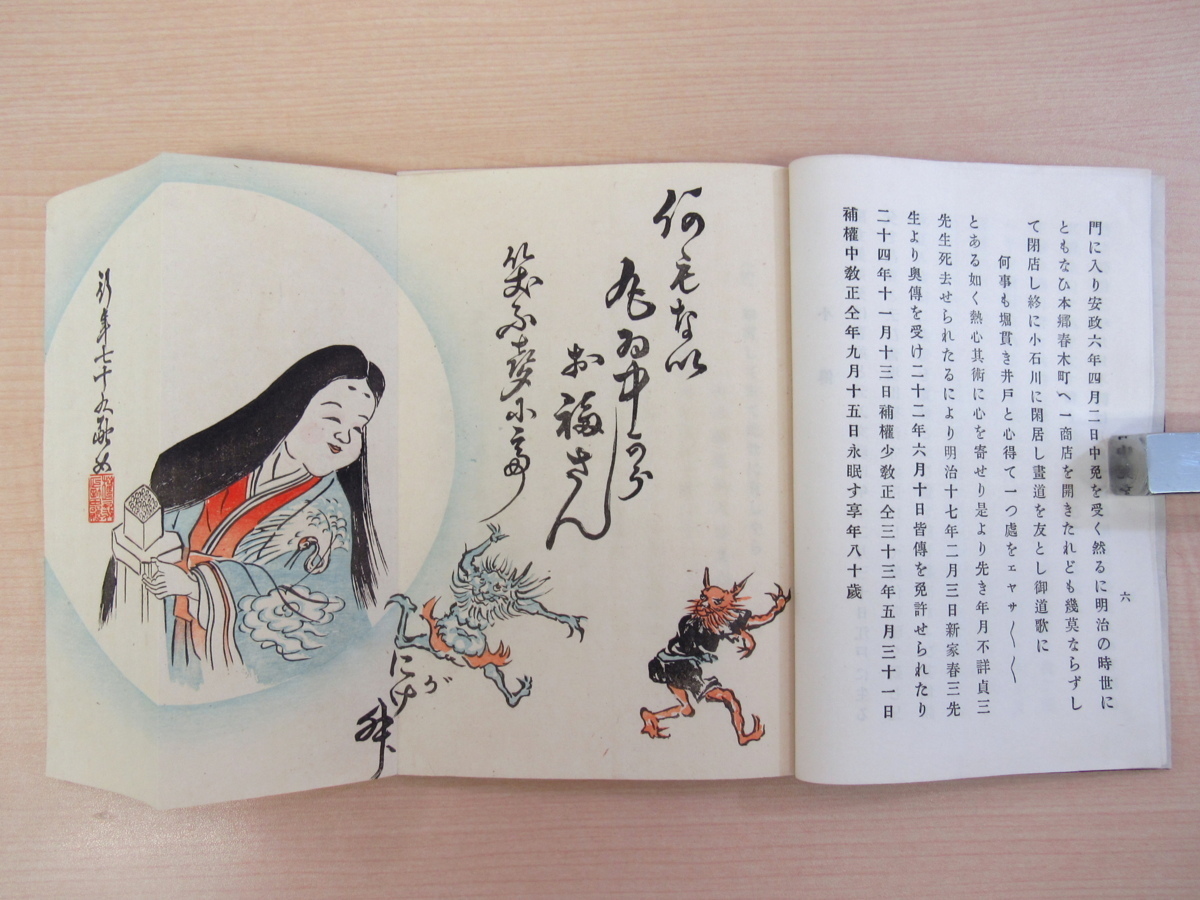 六
門に入り安政六年四月二日中免を受く然るに明治の時世に
ともなひ本郷春木町へ一商店を開きたれども幾莫ならずし
て閉店し終に小石川に閑居し畫道を友とし御道歌に
何事も堀貫き井戸と心得て一つ處をエヤサ〱〱
とある如く熱心其術に心を寄せり是より先き年月不詳貞三
先生死去せられたるにより明治十七年二月三日新家春三先
生より奥傳を受け二十二年六月十日皆傳を免許せられたり
二十四年十一月十三日補權少教正仝三十三年五月三十一日
補權中教正仝年九月十五日永眠す享年八十歳
何もな以
お福さん
にけが